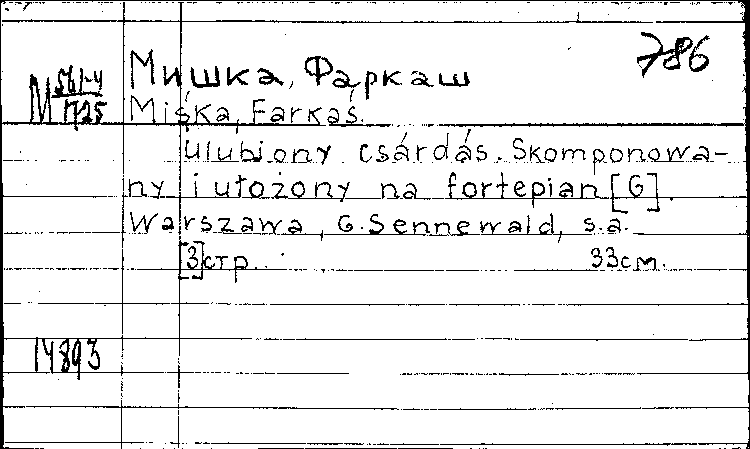 786
М 561-4
1725
Мишка, Фаркаш
Miśka, Farkaś.
Ulubiony csárdás. Skomponowa-
ny i ułożony na fortepian [G].
Warszawa, G. Sennewald, s.a.
[3] стр. 33 см.
14893